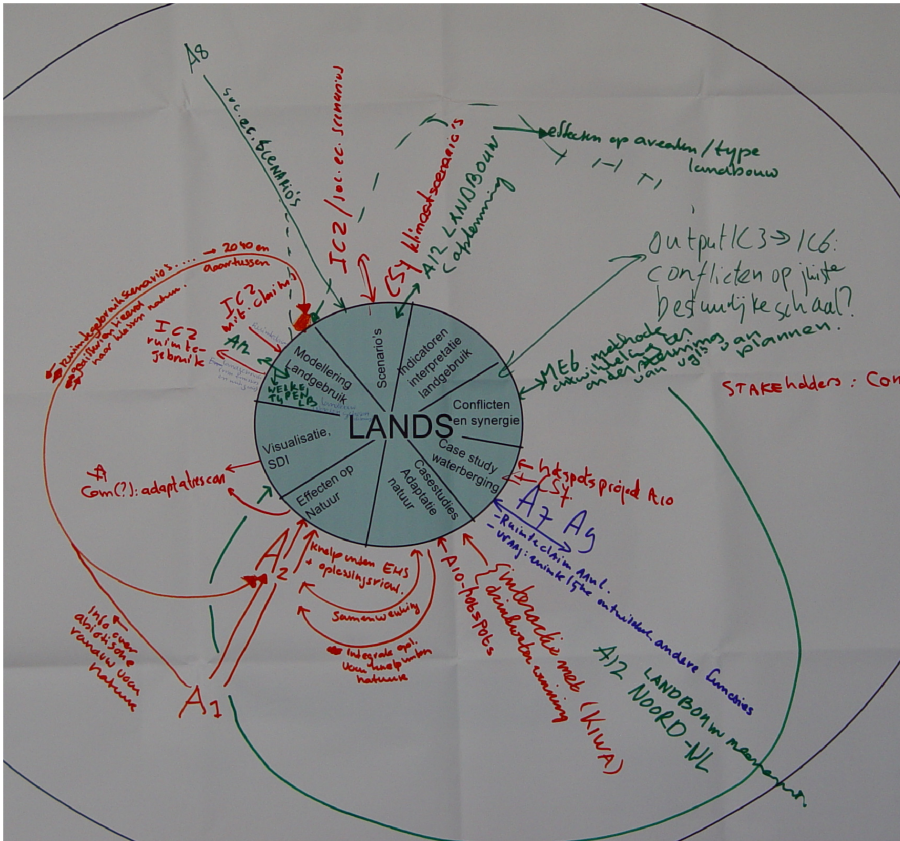 A8
soc. ec. SCENARIO'S
IC2/soc. ec. scenarios
CS7 klimaatscenario's
A12 LANDBOUW
effecten op arealen/type
landbouw
Output IC3 → IC6:
conflicten op juiste
bestuurlijke schaal?
ME6 methode
ontwikkeling ter
ondersteuning van
plannen.
STAKEholders: Con
Ruimtegebruikscenarios.... → 2040 en
daartussen
IC2
IC2
ruimte-
gebruik
A12
WELKE
TYPEN
LB
Modellering
Landgebruik
Scenario's
Indicatoren
interpretatie
landgebruik
Conflicten
en synergie
LANDS
Visualisatie,
SDI
Effecten op
Natuur
Casestudies
Adaptatie
natuur
Case study
waterberging
Com(?): adaptatiescan
hotspotsproject A10
CS7
A7 A9
- Ruimteclaim
- vraag: ruimtelijke ontwikkel. andere functies
A2
knelpunten EHS
+ oplossingsricht.
Samenwerking
integrale opl.
voor knelpunten
natuur
A10-hotspots
interactie met (KIWA)
drinkwaterwinning
A12 LANDBOUW
NOORD-NL
Info over
abiotische
randvw voor
Natuur
A1